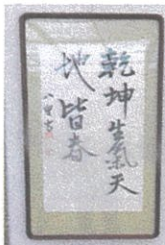 乾坤生氣天
地皆春